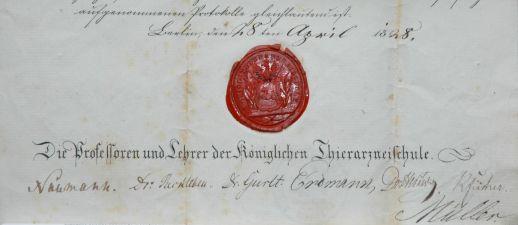 aufgenommenen Protokolle gleichlautend ist.
Berlin, den 28ten April 1828.
Die Professoren und Lehrer der Königlichen Thierarzneischule.
Naumann. Dr. Dr. Gurlt Erdmann,
Müller